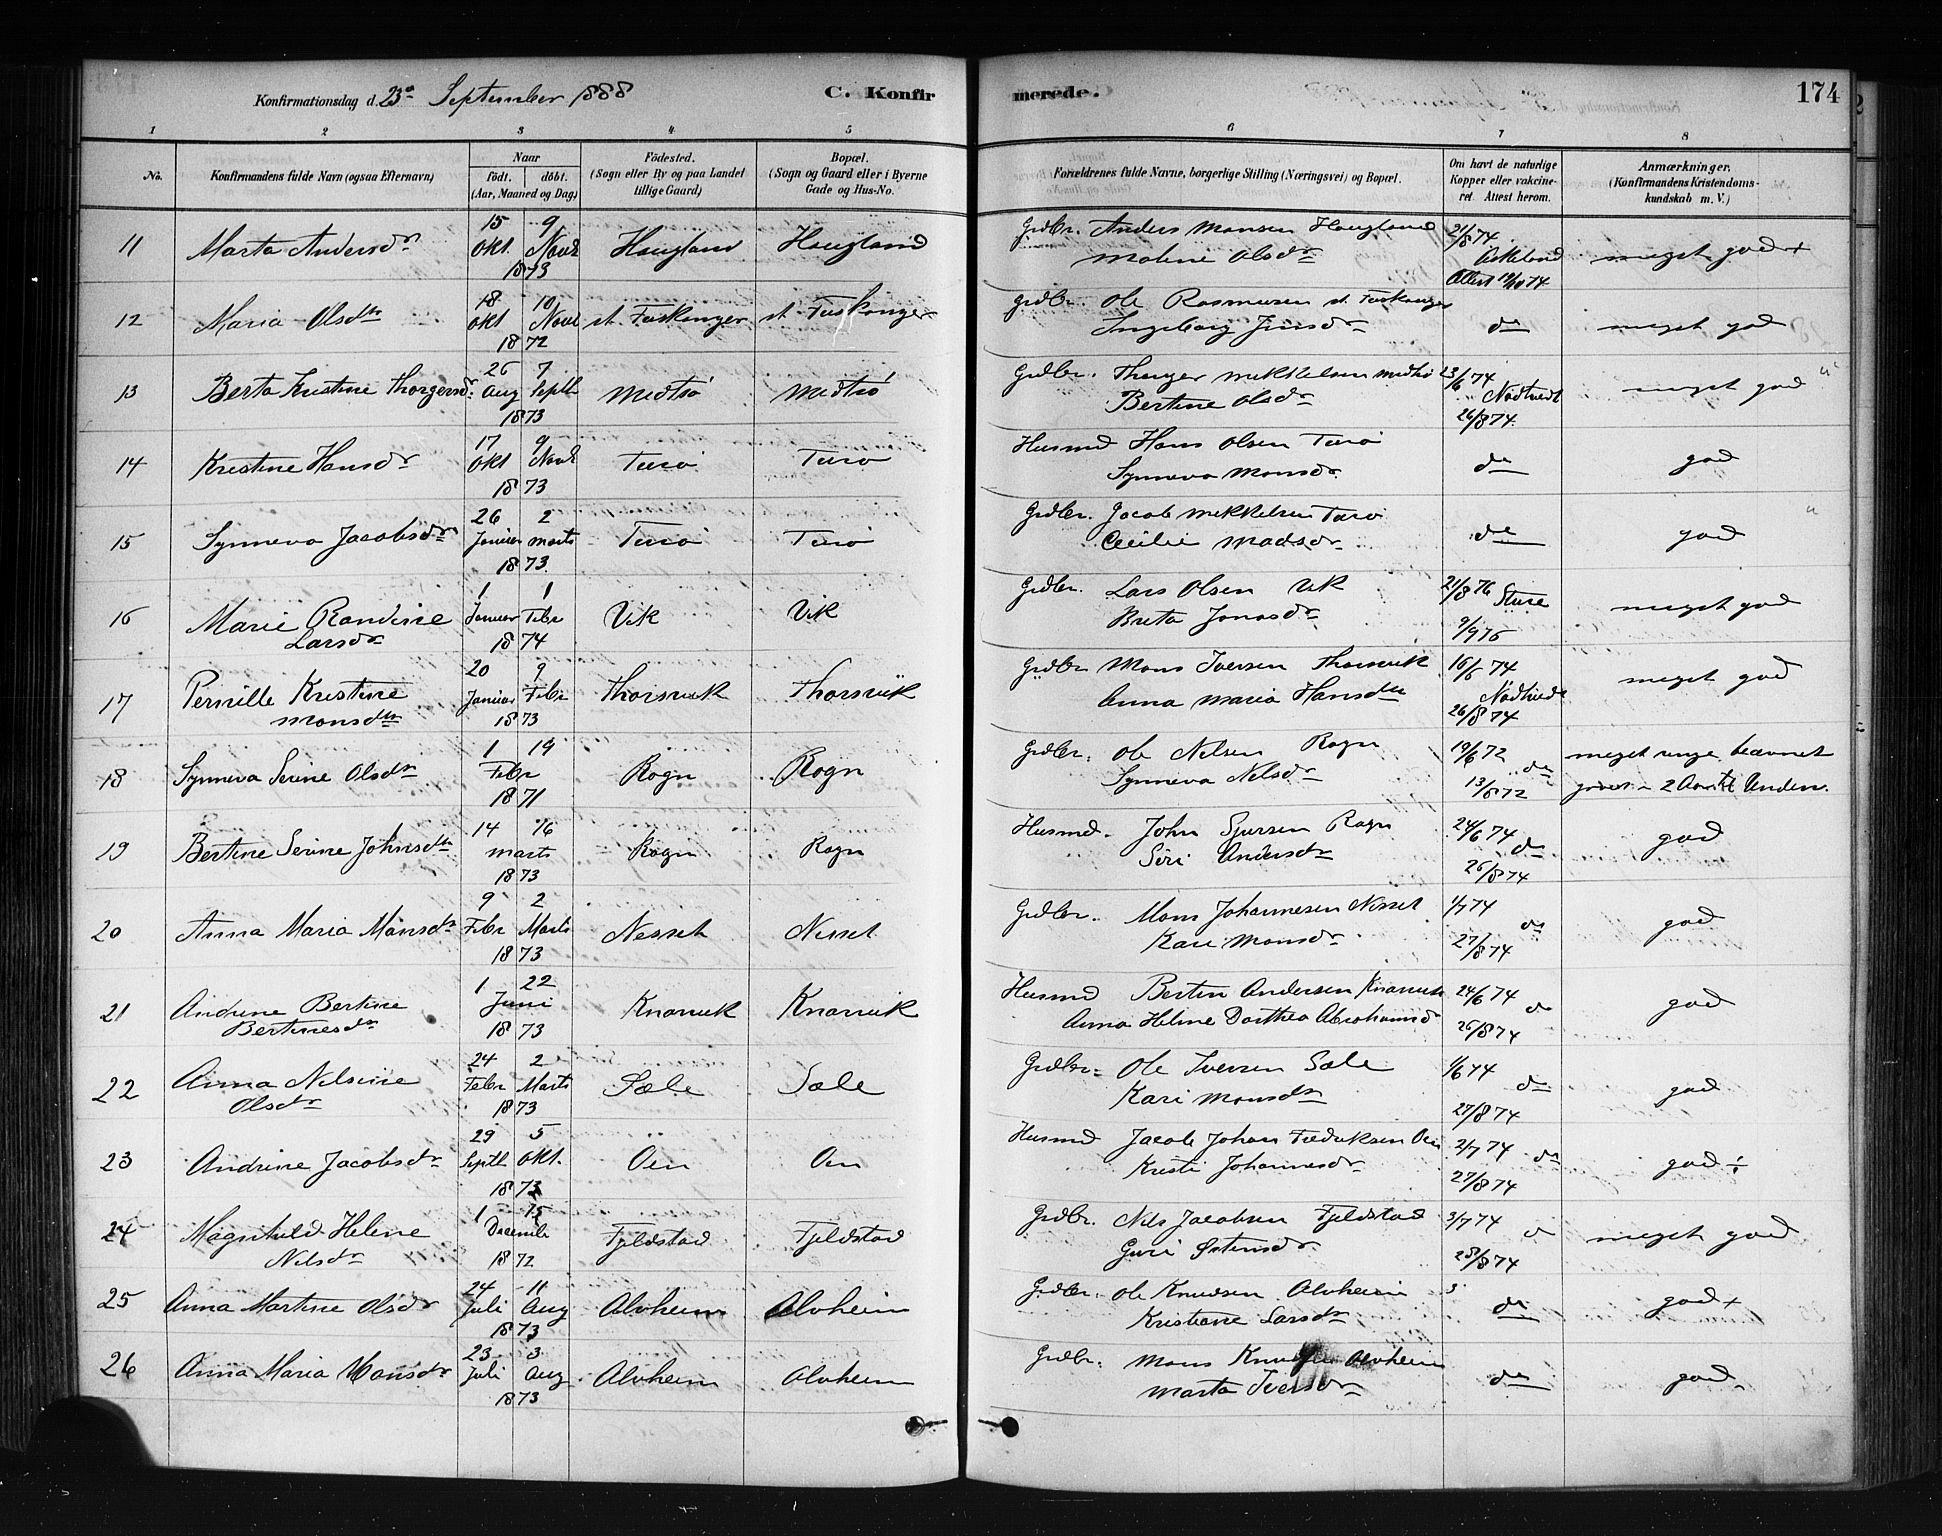 Konfirmationsdag d. 23de September 1888 C. Konfirmerede. 174
1 2 3 4 5 6 7 8
No. Konfirmandens fulde Navn (ogsaa Efternavn) Naar födt. döbt. (Aar, Maaned og Dag) Födested. (Sogn eller By og paa Landet tillige Gaard) Bopæl. (Sogn og Gaard eller i Byerne Gade og Hus-No. Forældrenes fulde Navne, borgerlige Stilling (Næringsvei) og Bopæl. Om havt de naturlige Kopper eller vakcineret Attest herom. Anmærkninger. (Konfirmandens Kristendomskundskab m. V.)
11 Marta Andersdr 15 Okt. 9 Novb 1873 Haugland Haugland Grdbr. Anders Monsen Haugland Malene Olsdr 21/8 74 Askeland Attest 19/10 74 meget god +
12 Maria Olsdtr 18 Okt 10 Novb 1872 st. Fuskanger st. Fuskanger Grdbr. Ole Rasmusen st. Fuskanger Ingeborg Jensdr do meget god
13 Berta Kristine Thorgersdr. 26 Aug 7 Septb 1873 Medtsö Medtsö Grdbr. Thorger Mikkelsen Medtsö Bertine Olsdr 23/6 74 Nödtvedt 26/8 74. meget god "
14 Kristine Hansdr 17 Okt 9 Novb 1873 Turö Turö Husmd Hans Olsen Turö Synneva Monsdr. do god
15 Synneva Jacobsdr 26 Januar 2 Marts 1873. Turö Turö Grdbr. Jacob Mikkelsen Turö Cecilie Madsdr. do god "
16 Marie Randine Larsdr 1 Januar 1 Febr 1874 Vik Vik Grdbr. Lars Olsen Vik Brita Jonasdr 21/8 76 Sture 9/9 76 meget god
17 Pernille Kristine Monsdtr 20 Januar 9 Febr 1873 Thorsvik Thorsvik Grdbr Mons Iversen Thorsvik Anna Maria Hansdtr 16/6 74 Nödtvedt 26/8 74 meget god
18 Synneva Serine Olsdtr 1 19 Febr 1871 Rogn Rogn Grdbr. Ole Nilsen Rogn Synneva Nilsdr 19/6 72 do 13/8 72 meget ringe 2
19 Bertine Serine Johnsdtr 14 16 Marts 1873 Rogn Rogn Husmd. John Sjursen Rogn Siri Andersdr 24/6 74 do 26/8 74 god
20 Anna Maria Monsdtr 9 Febr 2 Marts 1873 Nesset Nesset Grdbr. Mons Johannesen Nesset Kari Monsdr 1/7 74 do 27/8 74 god
21 Andrine Bertine Bertinesdr 1 22 Juni 1873 Knarvik Knarvik Husmd Bertin Andersen Knarvik Anna Helene Dorthea Abrahamsdr 24/6 74 do 26/8 74 god
22 Anna Nilsine Olsdr 24 Febr 2 Marts 1873 Sæle Sæle Grdbr. Ole Iversen Sæle Kari Monsdtr 1/6 74 do 27/8 74 god
23 Andrine Jacobsdr 29 Septb 5 Okt. 1873 Oen Oen Husmd Jacob Johan Fredriksen Oen Kristi Johannesdr 2/7 74 do 27/8 74 god ÷
24 Magnhild Helene Nilsdr 1 15 Decemb 1872 Fjeldstad Fjeldstad Grdbr. Nils Jacobsen Fjeldstad Guri Östensdr 3/7 74 do 28/8 74 meget god
25 Anna Martine Olsdr 24 Juli 11 Aug 1873 Alvheim Alvheim Grdbr. Ole Knudsen Alvheim Kristiane Larsdtr do god +
26 Anna Maria Monsdr 23 Juli 3 Aug 1873 Alvheim Alvheim Grdbr. Mons Knudsen Alvheim Marta Iversdr do god